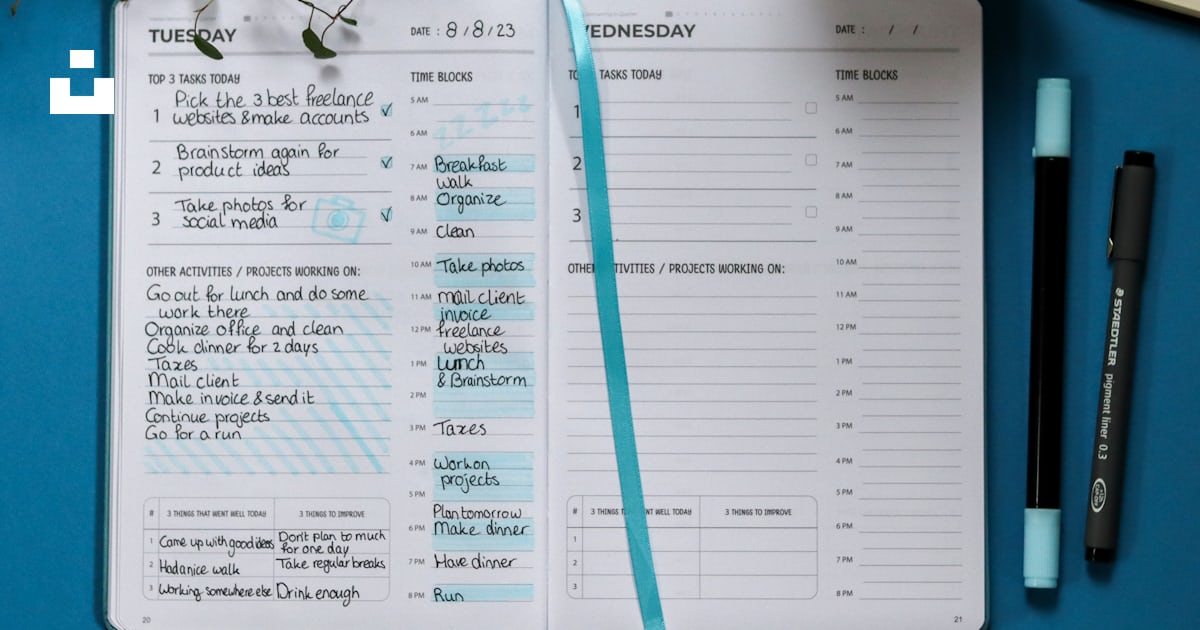 TUESDAY
DATE : 8/8/23
TOP 3 TASKS TODAY
1 Pick the 3 best freelance
websites & make accounts
2 Brainstorm again for
product ideas
3 Take photos for
social media
OTHER ACTIVITIES / PROJECTS WORKING ON:
Go out for lunch and do some
work there
Organize office and clean
Cook dinner for 2 days
Taxes
Mail client
Make invoice & send it
Continue projects
Go for a run
# 3 THINGS THAT WENT WELL TODAY 3 THINGS TO IMPROVE
1 Came up with good ideas Don't plan to much
for one day
2 Had a nice walk Take regular breaks
3 Working somewhere else Drink enough
20
TIME BLOCKS
5 AM
zzzzz
6 AM
7 AM Breakfast
walk
8 AM Organize
9 AM Clean
10 AM Take photos
11 AM Mail client
invoice
12 PM freelance
websites
1 PM Lunch
& Brainstorm
2 PM
3 PM Taxes
4 PM Work on
projects
5 PM
Plan tomorrow
6 PM Make dinner
7 PM Have dinner
8 PM Run
EDNESDAY
DATE : / /
TO TASKS TODAY
1
2
3
OTHE TIVITIES / PROJECTS WORKING ON:
# 3 THINGS T NT WELL TODAY 3 THINGS TO IMPROVE
1
2
3
TIME BLOCKS
5 AM
6 AM
7 AM
8 AM
9 AM
10 AM
11 AM
12 PM
1 PM
2 PM
3 PM
4 PM
5 PM
6 PM
7 PM
8 PM
21
STAEDTLER
pigment liner 0.3